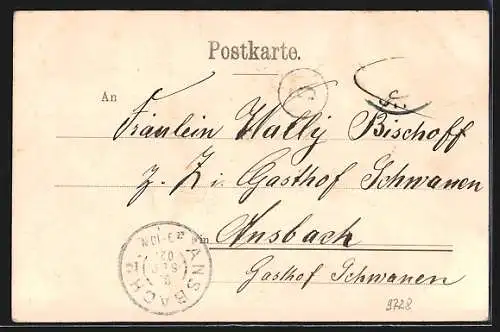 Postkarte.
An
Fräulein Wally Bischoff
z. Z. i. Gasthof Schwanen
in Ansbach
Gasthof Schwanen
ANSBACH
9728